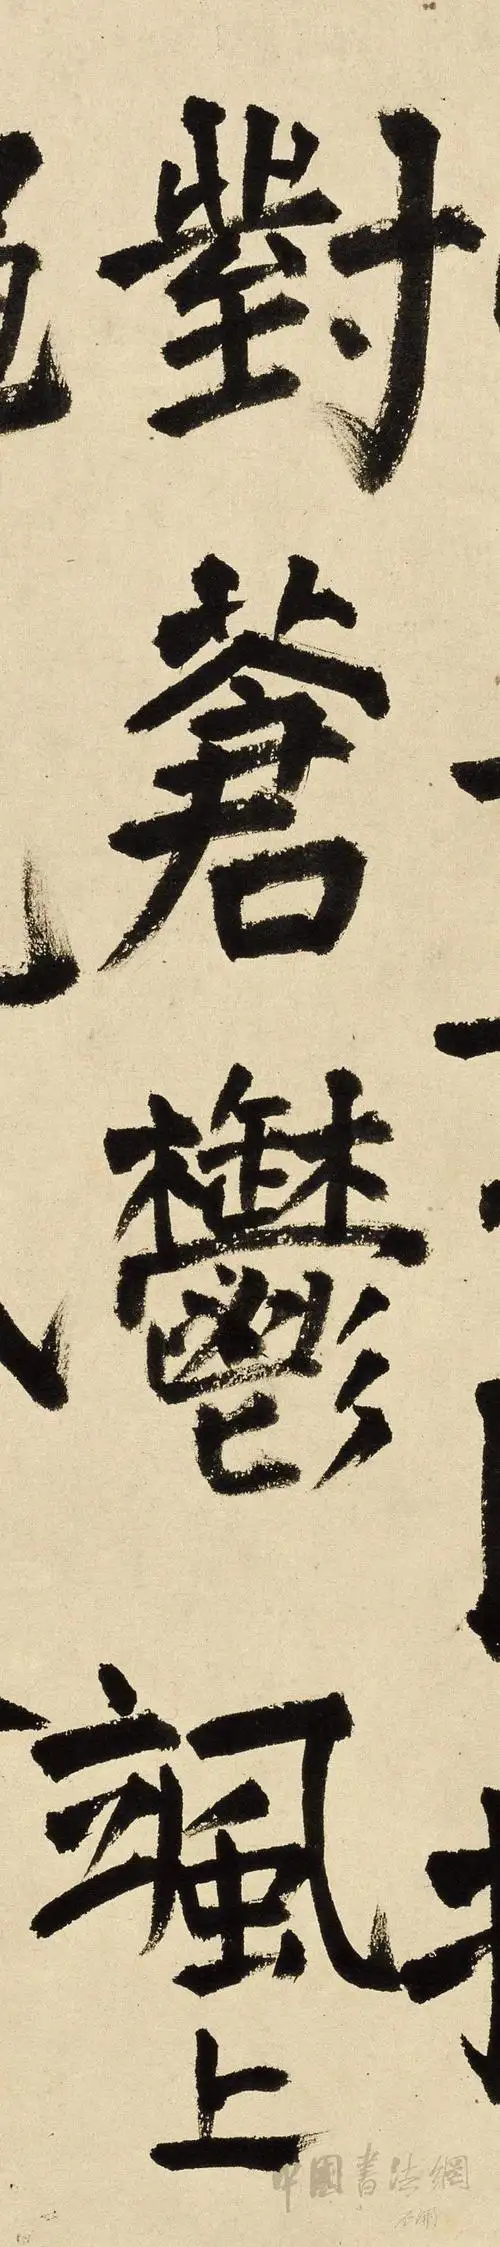 對蒼鬱颯上
中國書法網